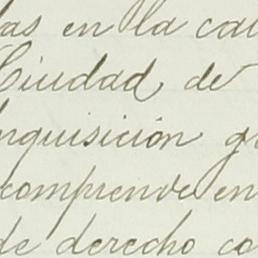 las en la cal
Ciudad de
Inquisición g
comprende en
de derecho co